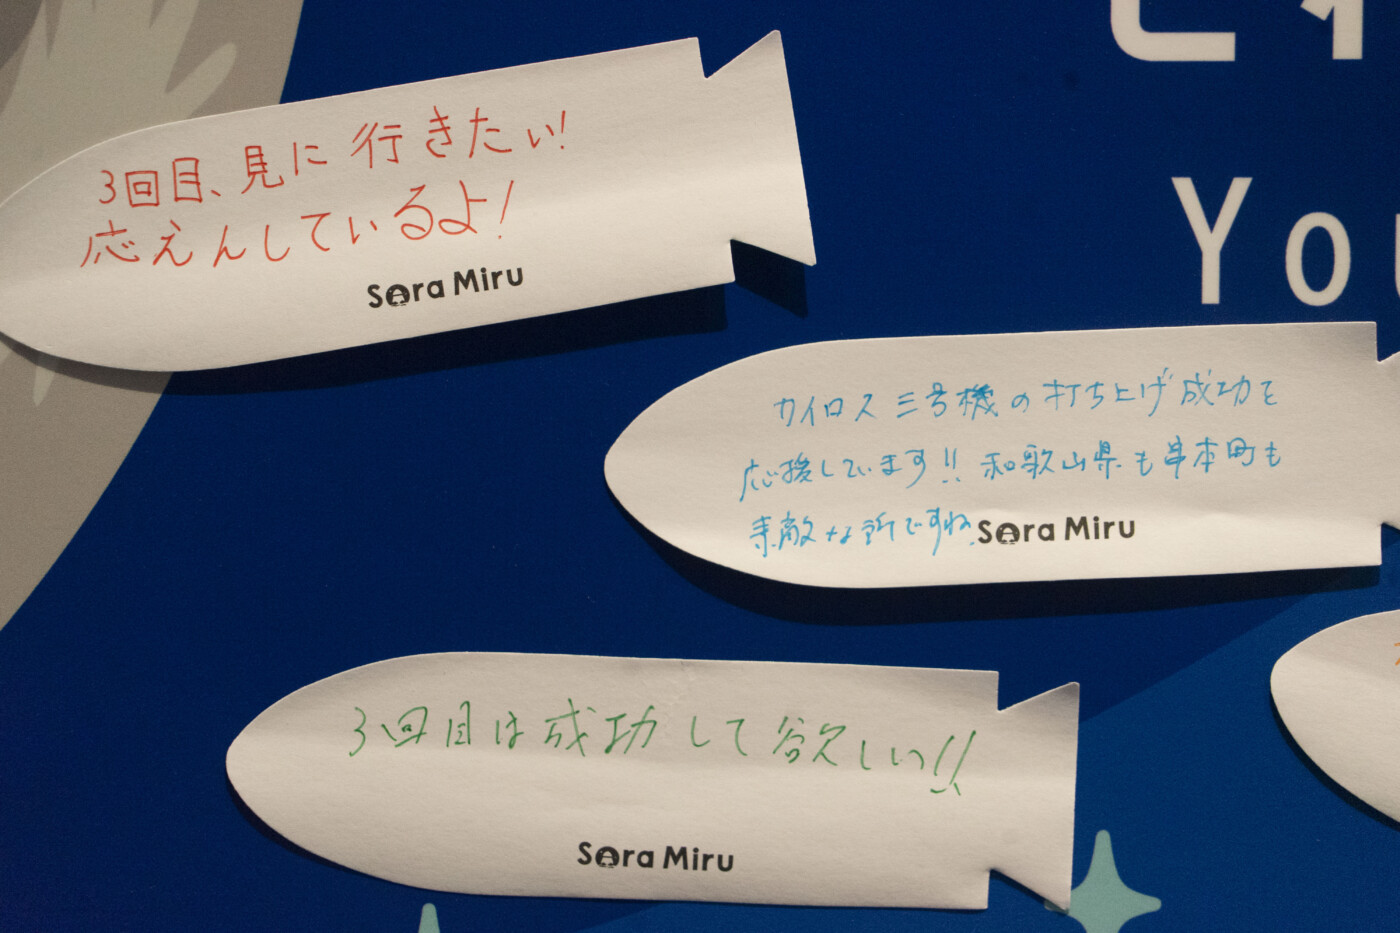 3回目、見に行きたい!
応えんしているよ!
Sora Miru
You
カイロス三号機の打ち上げ成功を
応援しています!! 和歌山県も串本町も
素敵な所ですね。
Sora Miru
3回目は成功して欲しい!!
Sora Miru